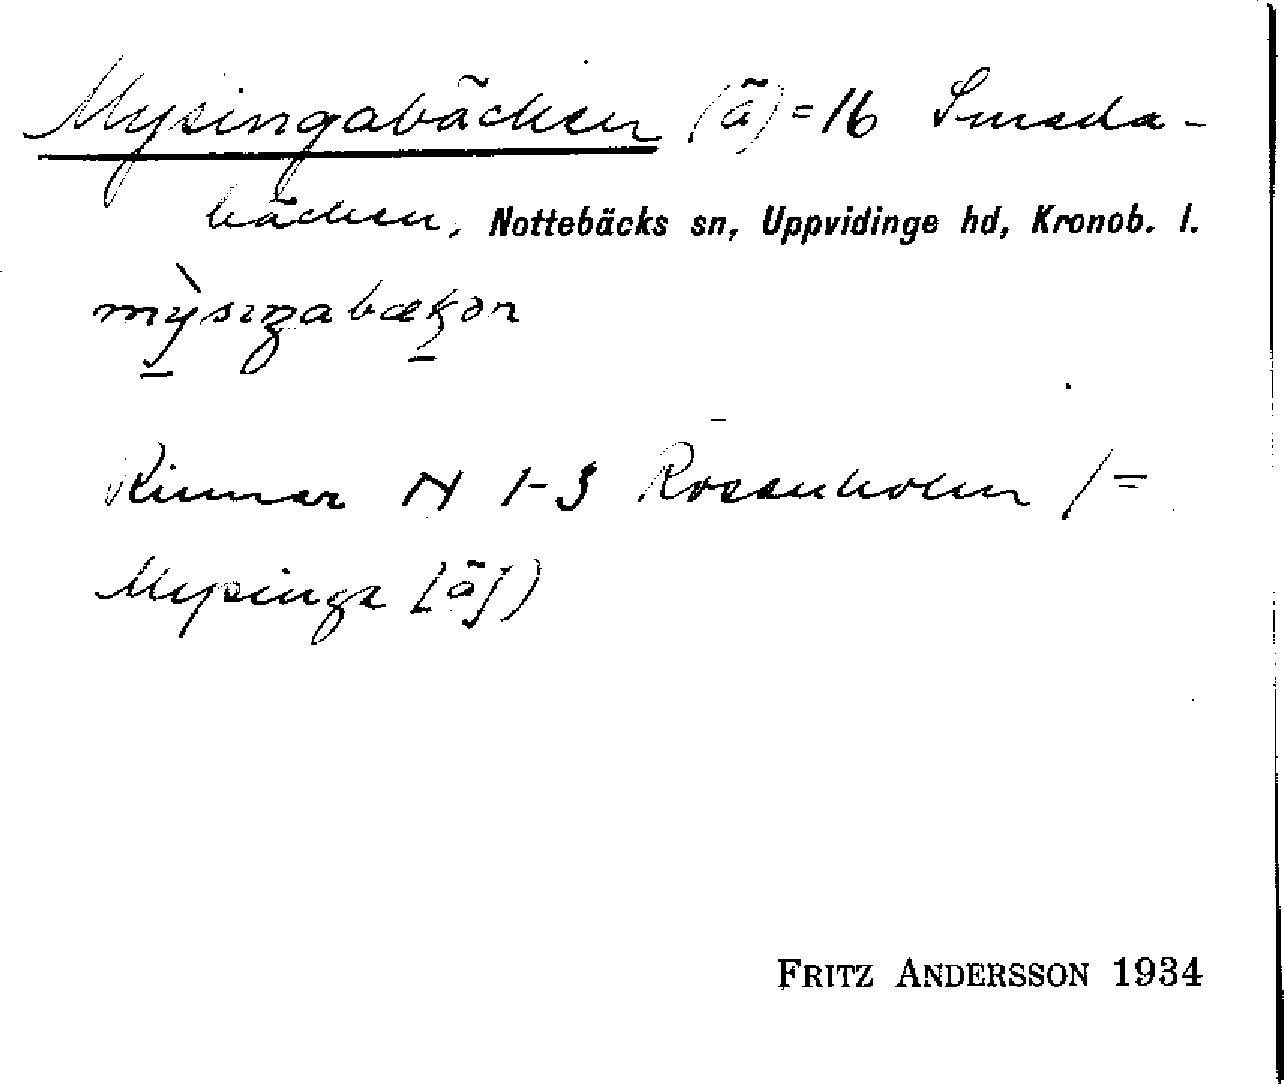 Mysingabäcken (å) = 16 Smeda-
bäcken, Nottebäcks sn, Uppvidinge hd, Kronob. l.
mỳsıŋabækən
Rinner N 1-3 Rössnholm (=
Mysinga [å])
FRITZ ANDERSSON 1934